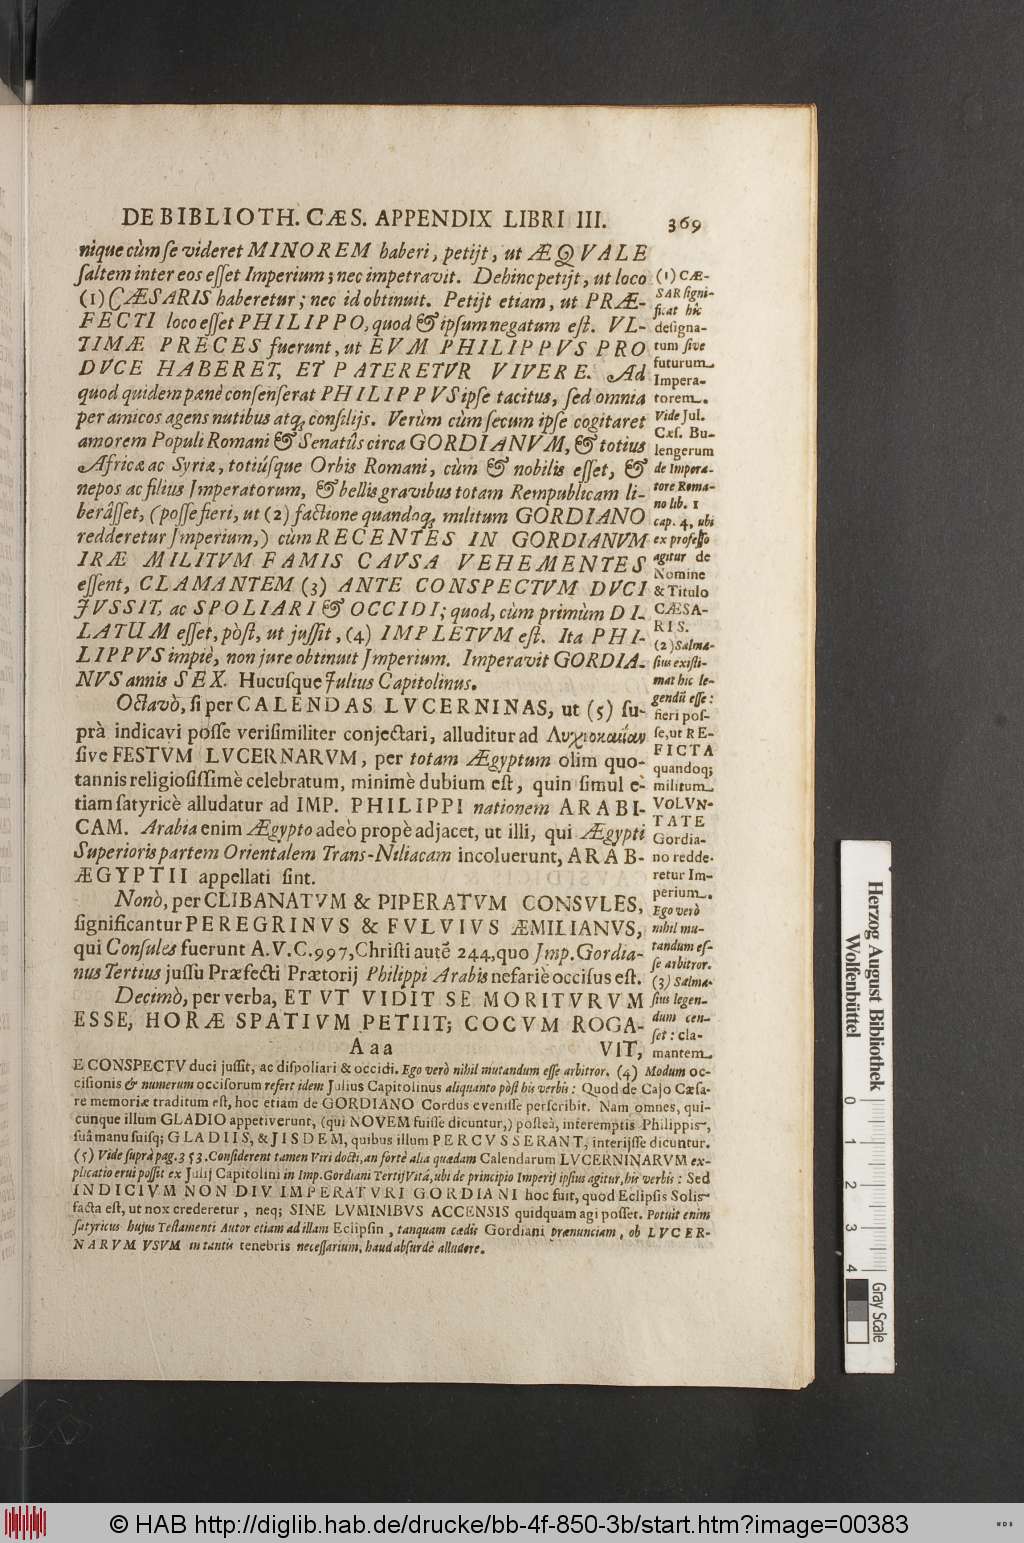 DE BIBLIOTH. CÆS. APPENDIX LIBRI III. 369
nique cùm se videret MINOREM haberi, petijt, ut ÆQVALE
saltem inter eos esset Imperium; nec impetravit. Dehinc petijt, ut loco
(1) CÆSARIS haberetur; nec id obtinuit. Petijt etiam, ut PRÆ-
FECTI loco esset PHILIPPO, quod & ipsum negatum est. VL-
TIMÆ PRECES fuerunt, ut EVM PHILIPPVS PRO
DVCE HABERET, ET PATERETVR VIVERE. Ad
quod quidem panè consenserat PHILIPPVS ipse tacitus, sed omnia
per amicos agens nutibus atq; consilijs. Verùm cùm secum ipse cogitaret
amorem Populi Romani & Senatûs circa GORDIANVM, & totius
Africæ ac Syriæ, totiúsque Orbis Romani, cùm & nobilis esset, &
nepos ac filius Imperatorum, & bellis gravibus totam Rempublicam li-
berâsset, (posse fieri, ut (2) factione quandoq; militum GORDIANO
redderetur Imperium,) cùm RECENTES IN GORDIANVM
IRÆ MILITVM FAMIS CAVSA VEHEMENTES
essent, CLAMANTEM (3) ANTE CONSPECTVM DVCI
JVSSIT, ac SPOLIARI & OCCIDI; quod, cùm primùm DI-
LATUM esset, pòst, ut jussit, (4) IMPLETVM est. Ita PHI-
LIPPVS impiè, non jure obtinuit Imperium. Imperavit GORDIA-
NVS annis SEX. Hucusque Julius Capitolinus.
Octavò, si per CALENDAS LVCERNINAS, ut (5) su-
prà indicavi posse verisimiliter conjectari, alluditur ad Λυχνοκαΐαν
sive FESTVM LVCERNARVM, per totam Ægyptum olim quo-
tannis religiosissimè celebratum, minimè dubium est, quin simul e-
tiam satyricè alludatur ad IMP. PHILIPPI nationem ARABI-
CAM. Arabia enim Ægypto adeò propè adjacet, ut illi, qui Ægypti
Superioris partem Orientalem Trans-Niliacam incoluerunt, ARAB-
ÆGYPTII appellati sint.
Nonò, per CLIBANATVM & PIPERATVM CONSVLES,
significantur PEREGRINVS & FVLVIVS ÆMILIANVS,
qui Consules fuerunt A.V.C. 997, Christi autē 244, quo Imp. Gordia-
nus Tertius jussu Præfecti Prætorij Philippi Arabis nefariè occisus est.
Decimò, per verba, ET VT VIDIT SE MORITVRVM
ESSE, HORÆ SPATIVM PETIIT; COCVM ROGA-
Aaa VIT,
(1) CÆ-
SAR signi-
ficat hîc
designa-
tum sive
futurum
Impera-
torem.
Vide Jul.
Cæs. Bu-
lengerum
de Impera-
tore Roma-
no lib. 1
cap. 4, ubi
ex professo
agitur de
Nomine
& Titulo
CÆSA-
RIS.
(2) Salma-
sius existi-
mat hîc le-
gendū esse:
fieri pos-
se, ut RE-
FICTA
quandoq;
militum
VOLVN-
TATE
Gordia-
no redde-
retur Im-
perium.
Ego verò
nihil mu-
tandum es-
se arbitror.
(3) Salma-
sius legen-
dum cen-
set: cla-
mantem
E CONSPECTV duci jussit, ac dispoliari & occidi. Ego verò nihil mutandum esse arbitror. (4) Modum oc-
cisionis & numerum occisorum refert idem Julius Capitolinus aliquanto pòst his verbis: Quod de Cajo Cæsa-
re memoriæ traditum est, hoc etiam de GORDIANO Cordus evenisse perscribit. Nam omnes, qui-
cunque illum GLADIO appetiverunt, (qui NOVEM fuisse dicuntur,) posteà, interemptis Philippis,
suâ manu suisq; GLADIIS, & IISDEM, quibus illum PERCVSSERANT, interijsse dicuntur.
(5) Vide suprà pag. 353. Considerent tamen Viri docti, an fortè alia quædam Calendarum LVCERNINARVM ex-
plicatio erui possit ex Julij Capitolini in Imp. Gordiani Tertij Vitâ, ubi de principio Imperij ipsius agitur, his verbis: Sed
INDICIVM NON DIV IMPERATVRI GORDIANI hoc fuit, quod Eclipsis Solis
facta est, ut nox crederetur, neq; SINE LVMINIBVS ACCENSIS quidquam agi posset. Potuit enim
satyricus hujus Testamenti Autor etiam ad illam Eclipsin, tanquam cædis Gordiani prænunciam, ob LVCER-
NARVM VSVM in tantis tenebris necessarium, haud absurdè alludere.
Herzog August Bibliothek
Wolfenbüttel
0 1 2 3 4
Gray Scale
© HAB http://diglib.hab.de/drucke/bb-4f-850-3b/start.htm?image=00383